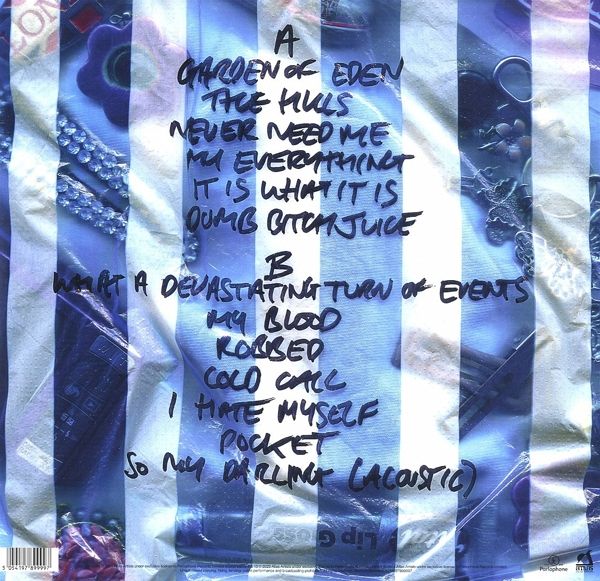 A
GARDEN OF EDEN
THE HILLS
NEVER NEED ME
MY EVERYTHING
IT IS WHAT IT IS
DUMB BITCH JUICE
B
WHAT A DEVASTATING TURN OF EVENTS
MY BLOOD
ROBBED
COLD CALL
I HATE MYSELF
POCKET
SO MY DARLING (ACOUSTIC)
Lip G
5 054197 899997
Parlophone